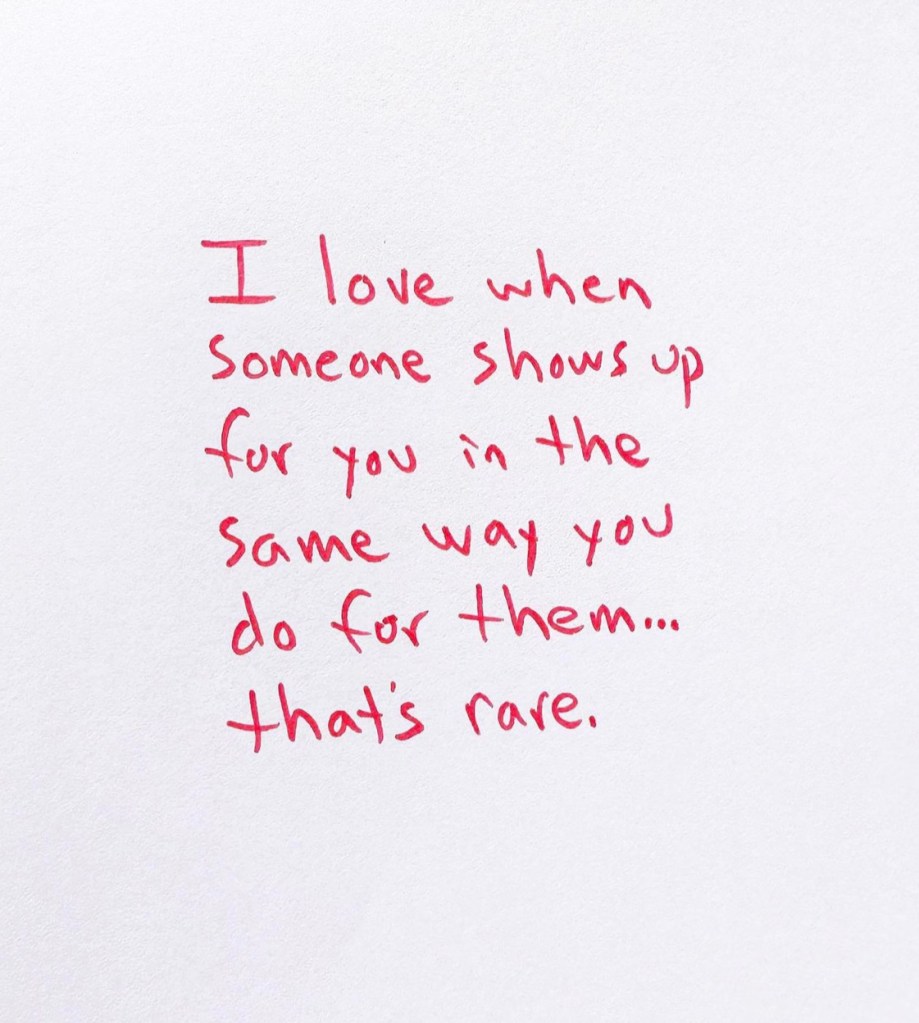 I love when
someone shows up
for you in the
same way you
do for them...
that's rare.